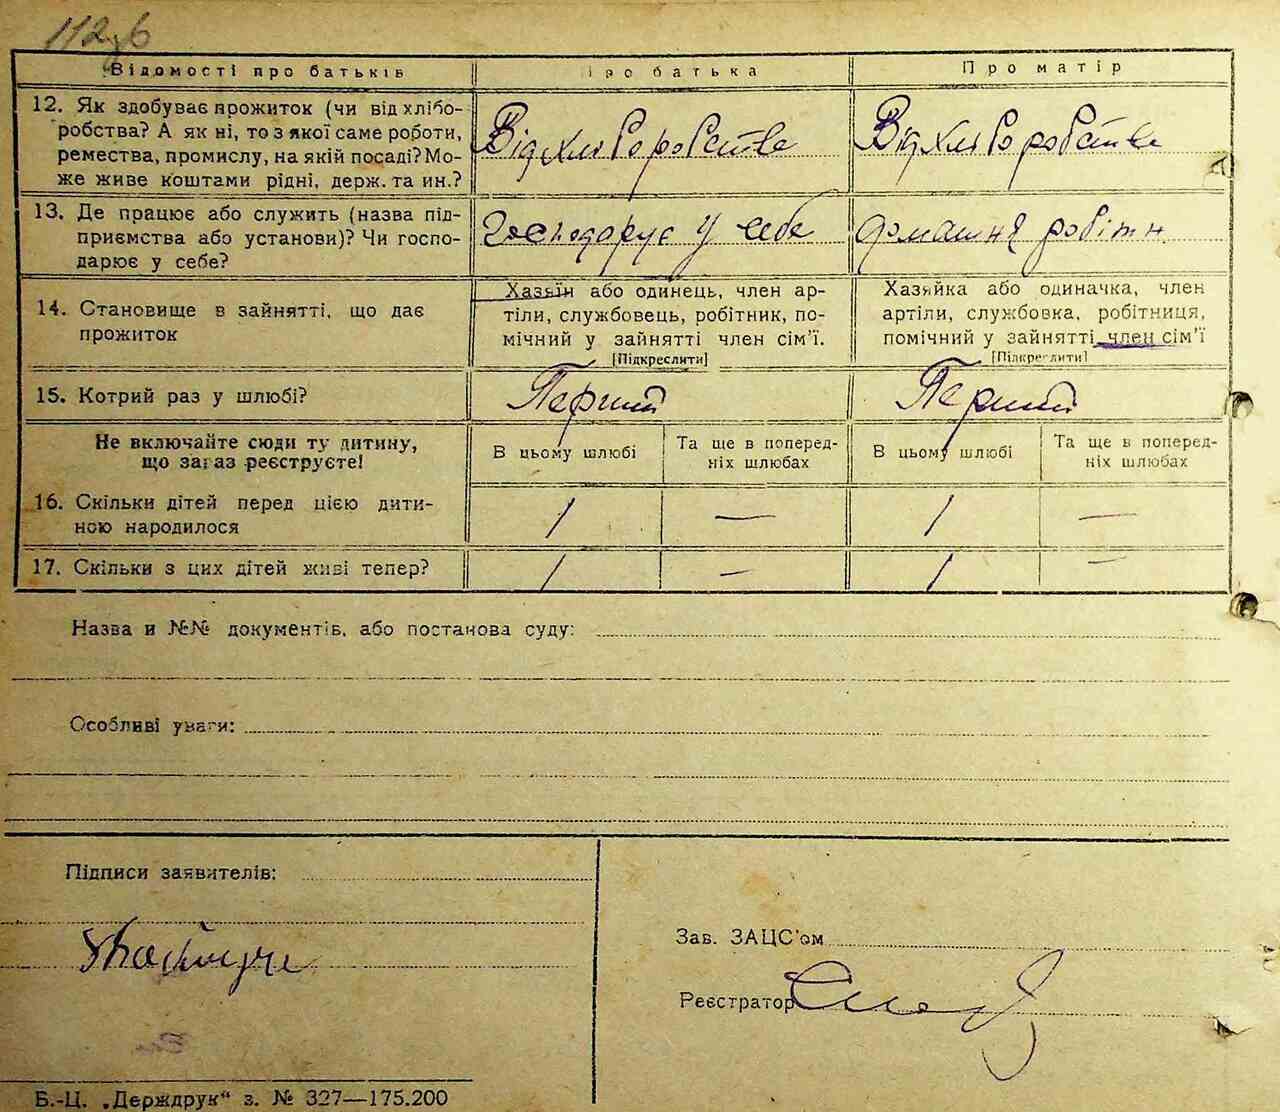 112
Відомості про батьків
Про батька
Про матір
12. Як здобуває прожиток (чи від хлібо-
робства? А як ні, то з якої саме роботи,
ремества, промислу, на якій посаді? Мо-
же живе коштами рідні, держ. та ин.?
Від хліборобства
Від хліборобства
13. Де працює або служить (назва під-
приємства або установи)? Чи госпо-
дарює у себе?
Господарує у себе
домашня робітн.
14. Становище в зайнятті, що дає
прожиток
Хазяїн або одинець, член ар-
тіли, службовець, робітник, по-
мічний у зайнятті член сім'ї.
[Підкреслити]
Хазяйка або одиначка, член
артіли, службовка, робітниця,
помічний у зайнятті член сім'ї
[Підкреслити]
15. Котрий раз у шлюбі?
Перший
Перший
Не включайте сюди ту дитину,
що зараз реєструєте!
В цьому шлюбі
Та ще в поперед-
ніх шлюбах
В цьому шлюбі
Та ще в поперед-
ніх шлюбах
16. Скільки дітей перед цією дити-
ною народилося
1 — 1 —
17. Скільки з цих дітей живі тепер?
1 — 1 —
Назва и №№ документів, або постанова суду:
Особливі уваги:
Підписи заявителів:
Зав. ЗАЦС'ом
Реєстратор
Б.-Ц. „Держдрук“ з. № 327—175.200